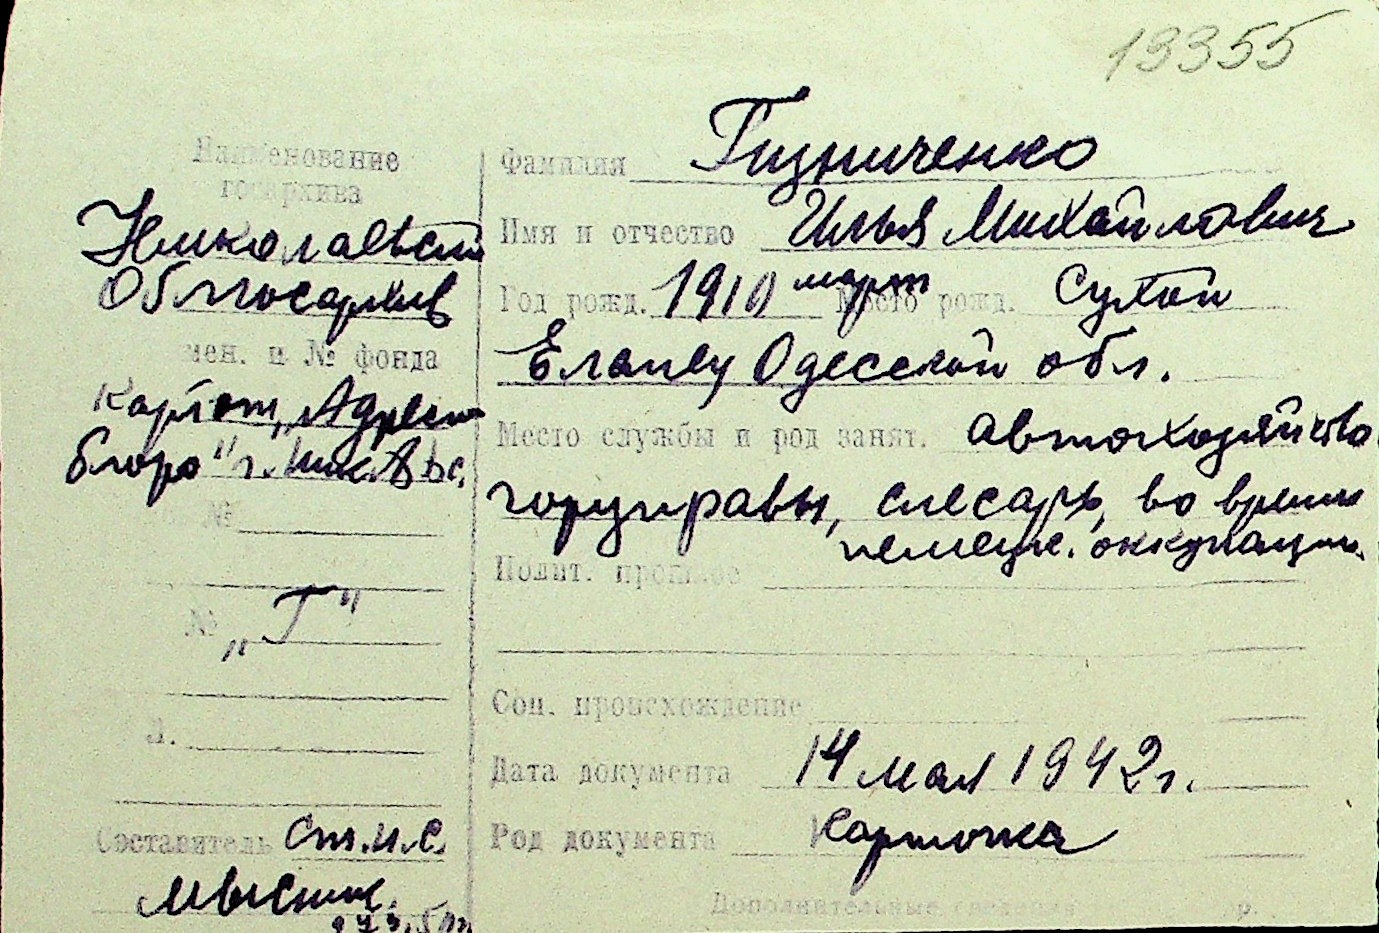 13355
Наименование
госархива
Николаевский
Облгосархив
мен. и № фонда
Картот. „Адресн
бюро" г.
№
№ „Г"
Л.
Составитель Ст.н.с.
Фамилия Гизниченко
Имя и отчество Илья Михайлович
Год рожд. 1910 март Место рожд. Сухой
Еланец Одесской обл.
Место службы и род занят. автохозяйство
горуправы, слесарь, во время
немецк. оккупации.
Полит. прошлое
Соц. происхождение
Дата документа 14 мая 1942 г.
Род документа Карточка
Дополнительные сведения